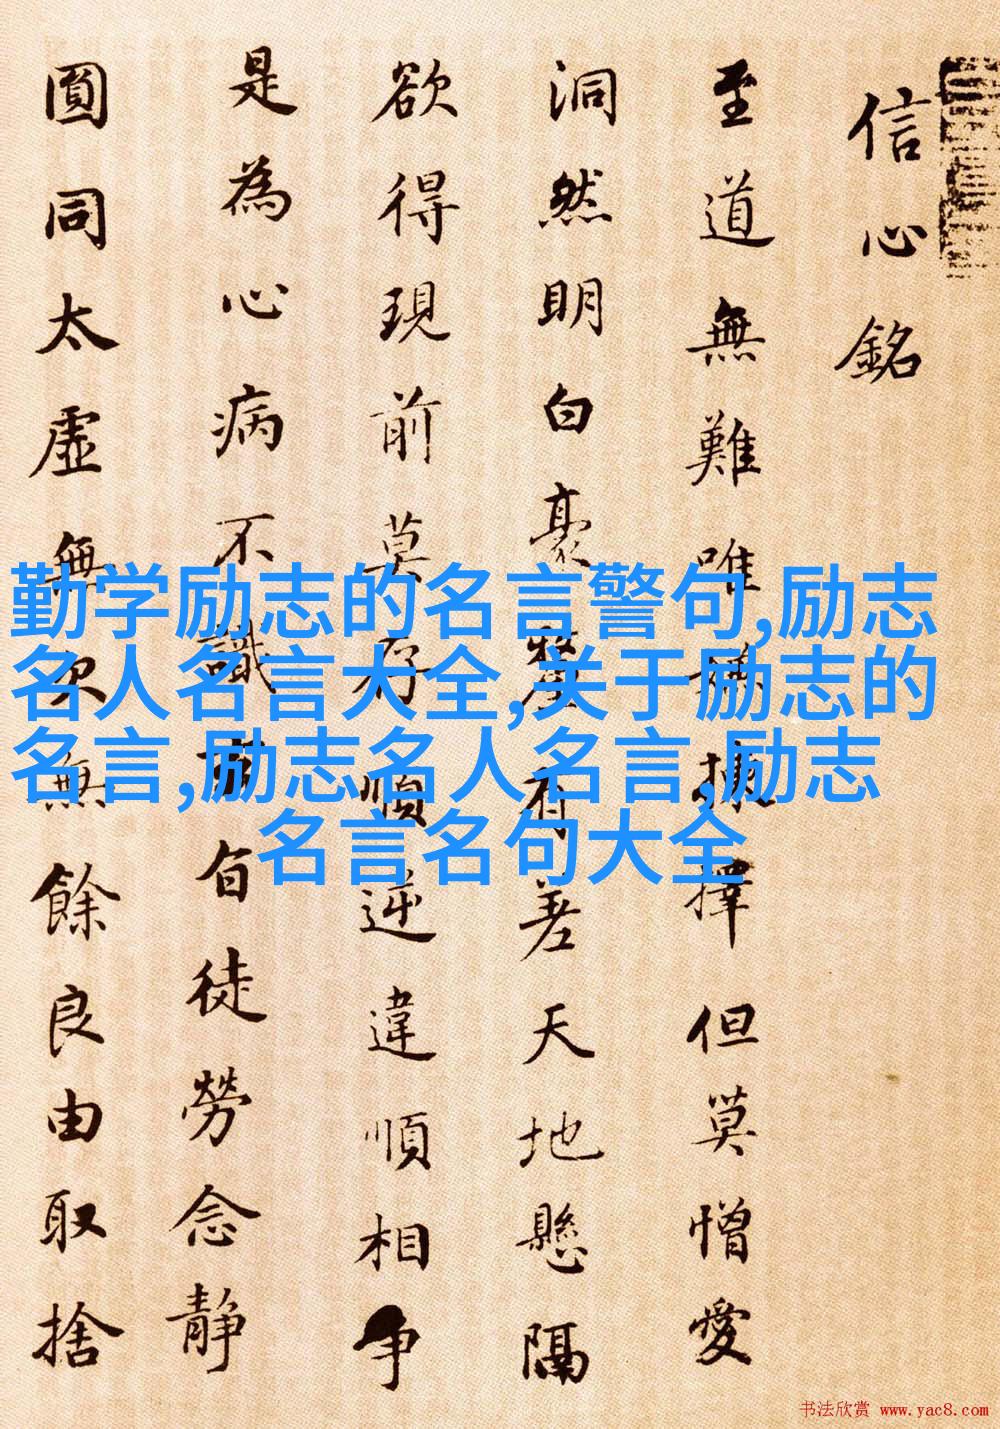 信心銘
至道無難唯嫌揀擇但莫憎愛
洞然明白豪釐有差天地懸隔
欲得現前莫存順逆違順相争
是為心病不識玄旨徒勞念静
圓同太虛無欠無餘良由取捨
勤学励志的名言警句,励志
名人名言大全,关于励志的
名言,励志名人名言,励志
名言名句大全
书法欣赏 www.yac8.com